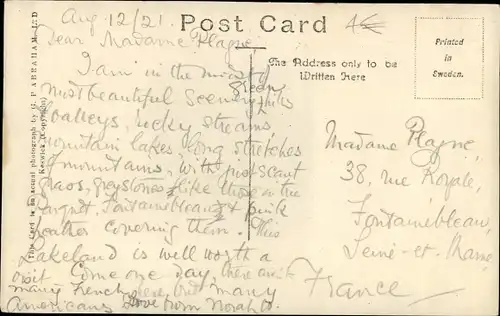 Aug 12/21
Post Card
4€
Printed in Sweden.
The Address only to be Written Here
This Card is an actual photograph by G. P. ABRAHAM, LTD
Keswick (Copyright)
Dear Madame Plagne
I am in the midst of
most beautiful scenery, green hills
valleys, rocky streams,
mountain lakes, long stretches
of mountains, with just scant
grass, greystones like those in the
Fontainebleau, & pink
heather covering them. This
Lakeland is well worth a
visit Come one day, there aren't
many French here but many
Americans Love from Norah
Madame Plagne,
38, rue Royale,
Fontainebleau,
Seine-et-Marne
France